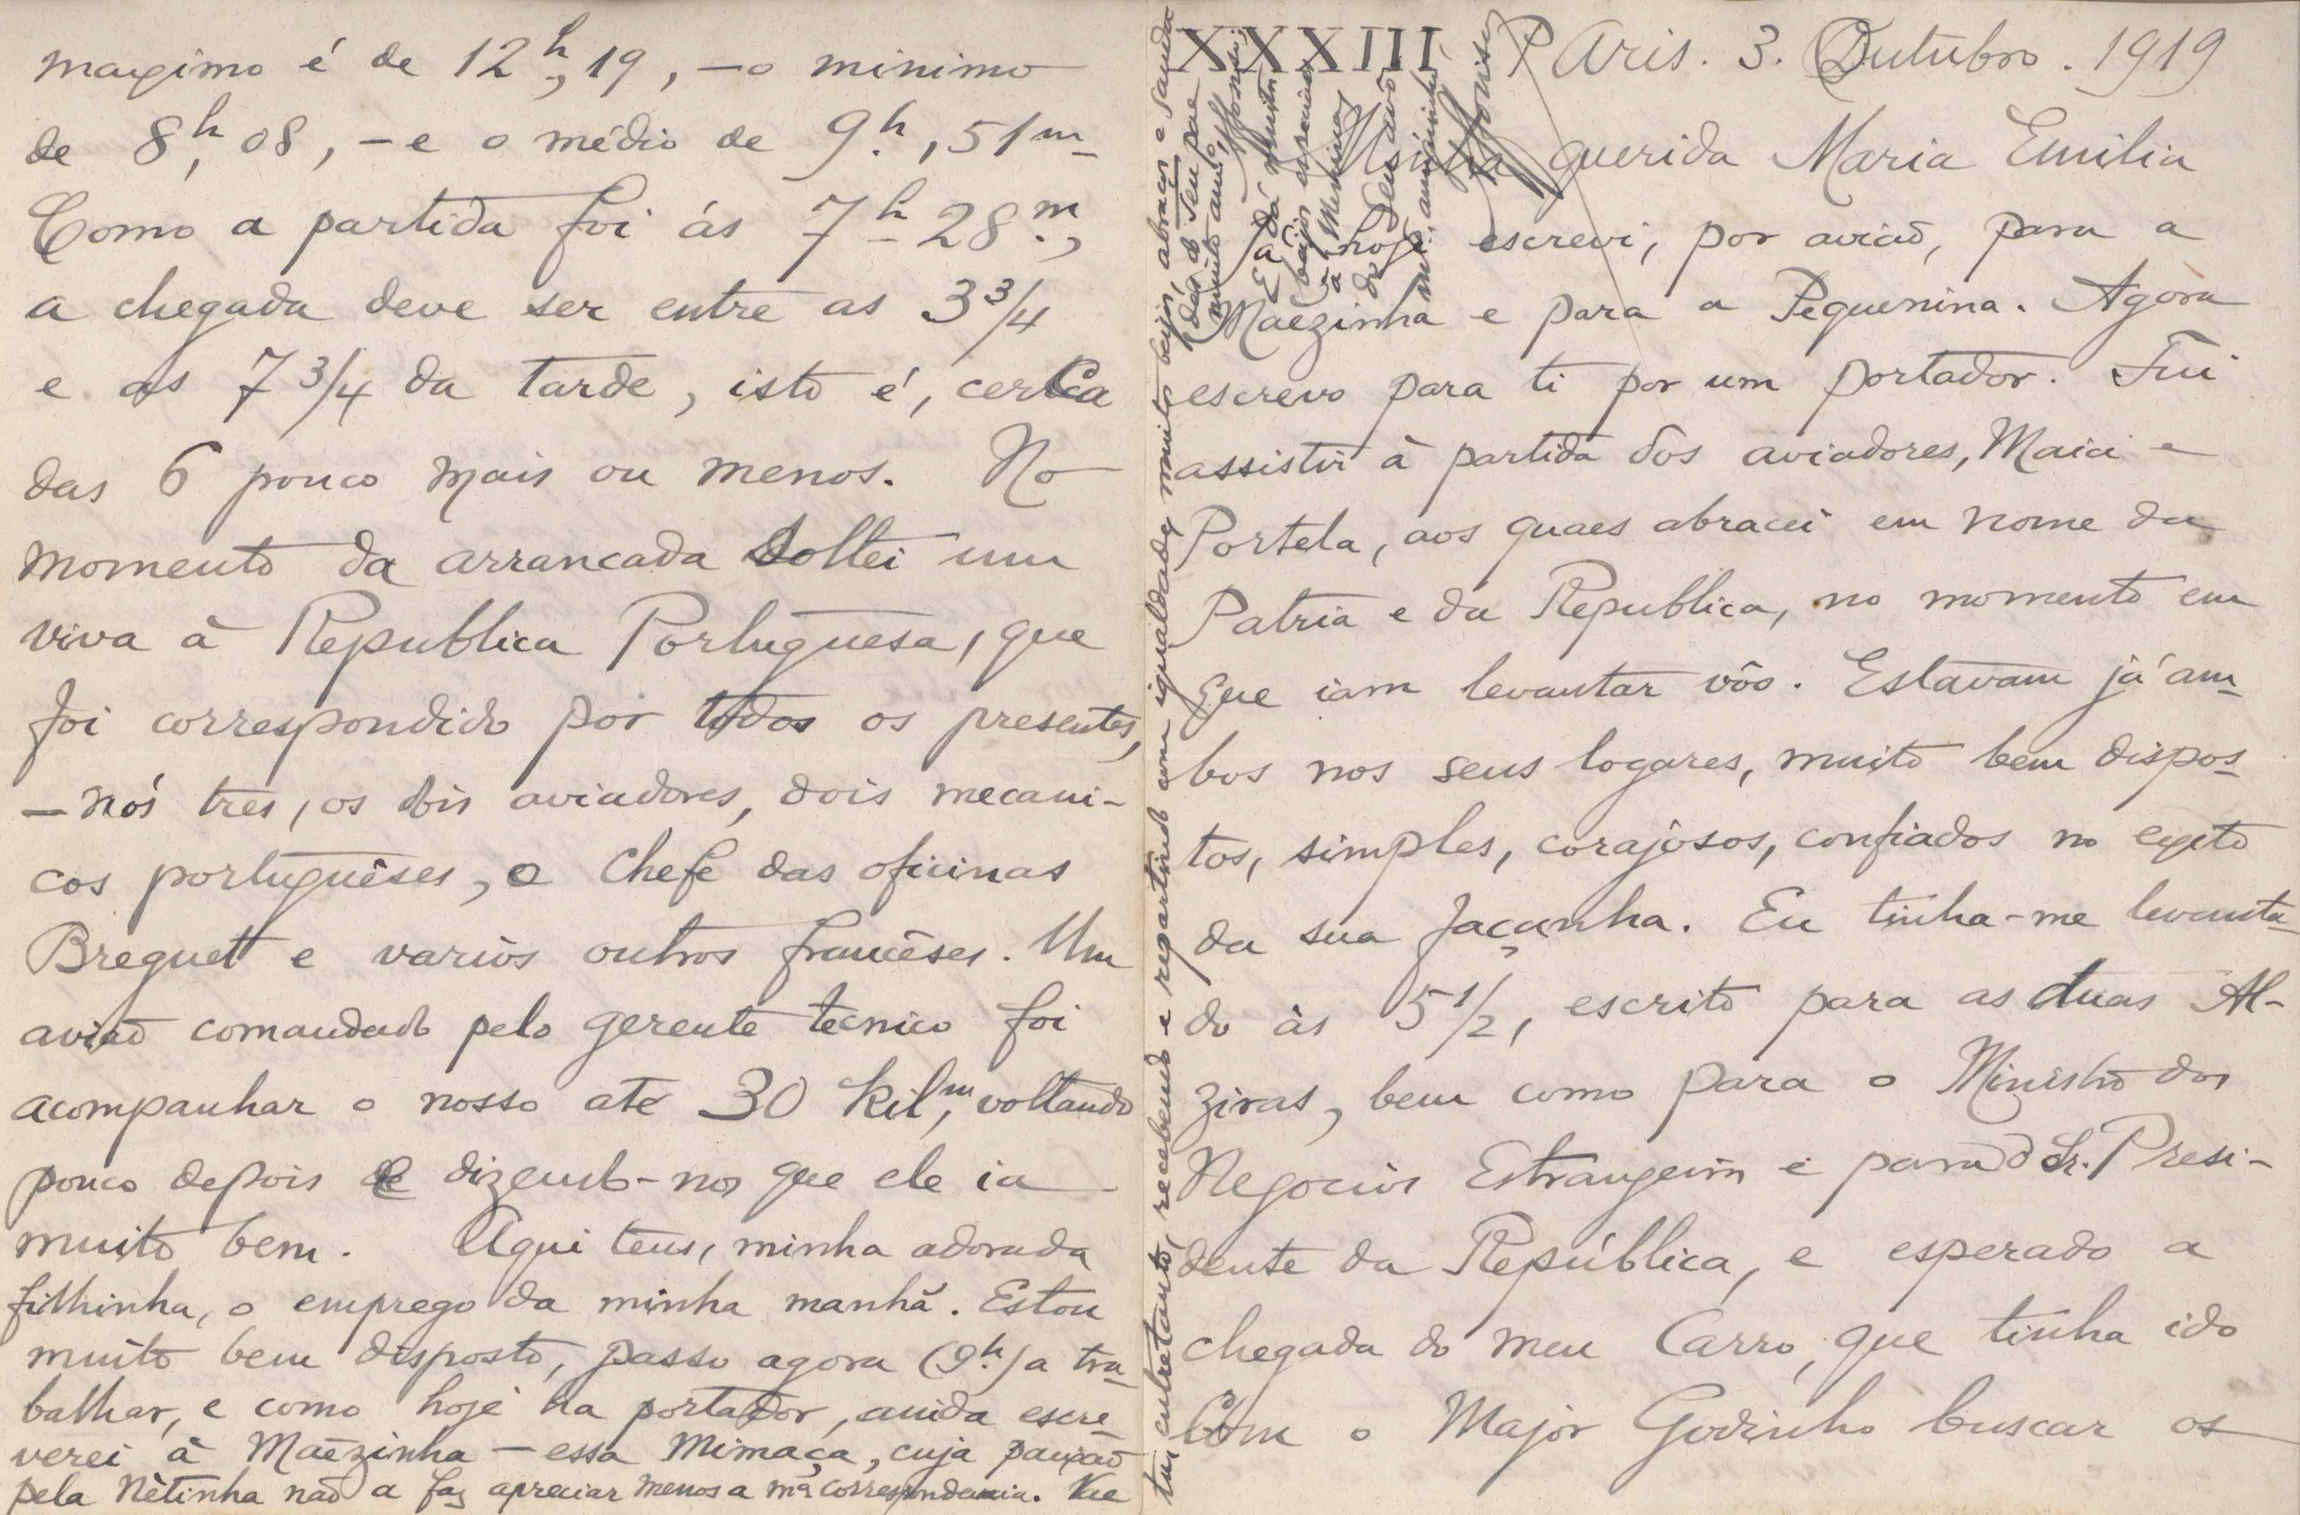 XXXIII
Paris. 3. Outubro. 1919
Minha querida Maria Emilia
Já hoje escrevi, por avião, para a
Mãezinha e para a Pequenina. Agora
escrevo para ti por um portador. Fui
assistir à partida dos aviadores, Maia e
Portela, aos quaes abracei em nome da
Patria e da Republica, no momento em
que iam levantar vôo. Estavam já am-
bos nos seus logares, muito bem dispos-
tos, simples, corajosos, confiados no exito
da sua façanha. Eu tinha-me levanta-
do às 5 1/2, escrito para as duas Al-
ziras, bem como para o Ministro dos
Negocios Estrangeiros e para o Sr. Presi-
dente da República, e esperado a
chegada do meu Carro, que tinha ido
com o Major Godinho buscar os
maximo é de 12h,19, – o minimo
de 8h,08, – e o médio de 9h.,51m
Como a partida foi ás 7h 28m.,
a chegada deve ser entre as 3 3/4
e as 7 3/4 da tarde, isto é, cerca
das 6 pouco mais ou menos. No
momento da arrancada soltei um
viva à Republica Portuguesa, que
foi correspondido por todos os presentes,
– nós tres, os dois aviadores, dois mecani-
cos portuguêses, o chefe das oficinas
Breguet e varios outros francêses. Um
avião comandado pelo gerente tecnico foi
acompanhar o nosso até 30 kilm, voltando
pouco depois e dizendo-nos que ele ia
muito bem. Aqui tens, minha adorada
filhinha, o emprego da minha manhã. Estou
muito bem disposto, passo agora (9h.) a tra-
balhar, e como hoje ha portador, ainda escre-
verei à Mãezinha – essa Mimaça, cuja paixão
pela Nètinha não a faz apreciar menos a mª correspondencia. Vae
tu, entretanto, recebendo e repartindo com igualdade, muitos beijos, abraços e sauda
des do teu pae
muito amigo, Affonso
E dá muitos
beijos especiaes
à Menina
do seu avô
mt. amiguinho
Affonso